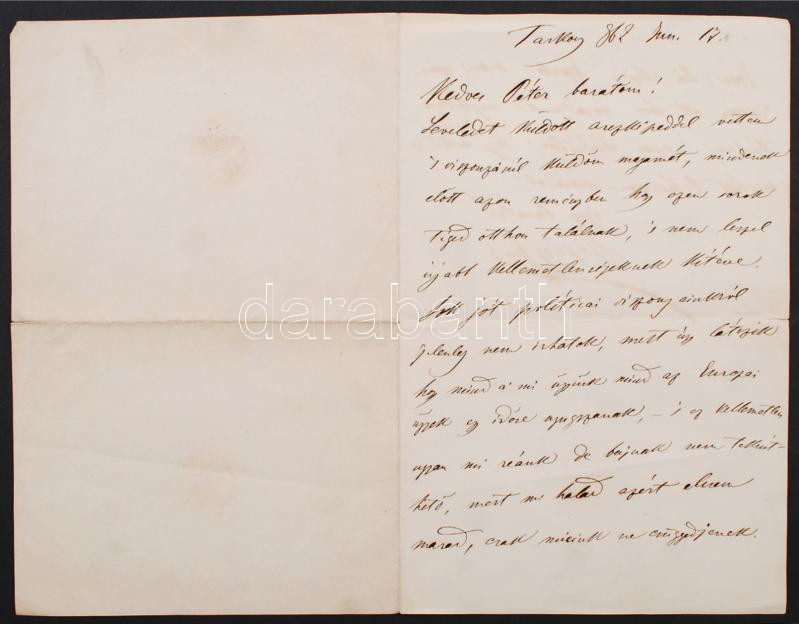 Tarkoy 862 Jun. 17.
Kedves Péter barátom!
Leveledet küldött arczképeddel vettem
's viszonzául küldöm magamét, mindenek
előtt azon reményben hogy ezen sorok
tiged otthon találnak, 's nem leszel
újabb kellemetlenségeknek kitéve.
Sok jót politicai viszonyainkról
jelenleg nem irhatok, mert úgy látszik
hogy mind a mi ügyünk mind az Europai
ügyek egy időre nyugszanak, – 's ez kellemetlen
ugyan mi reánk de bajnak nem tekint-
hető, mert mi halad azért elven
marad, csak mieink ne csüggedjenek.
darabanth